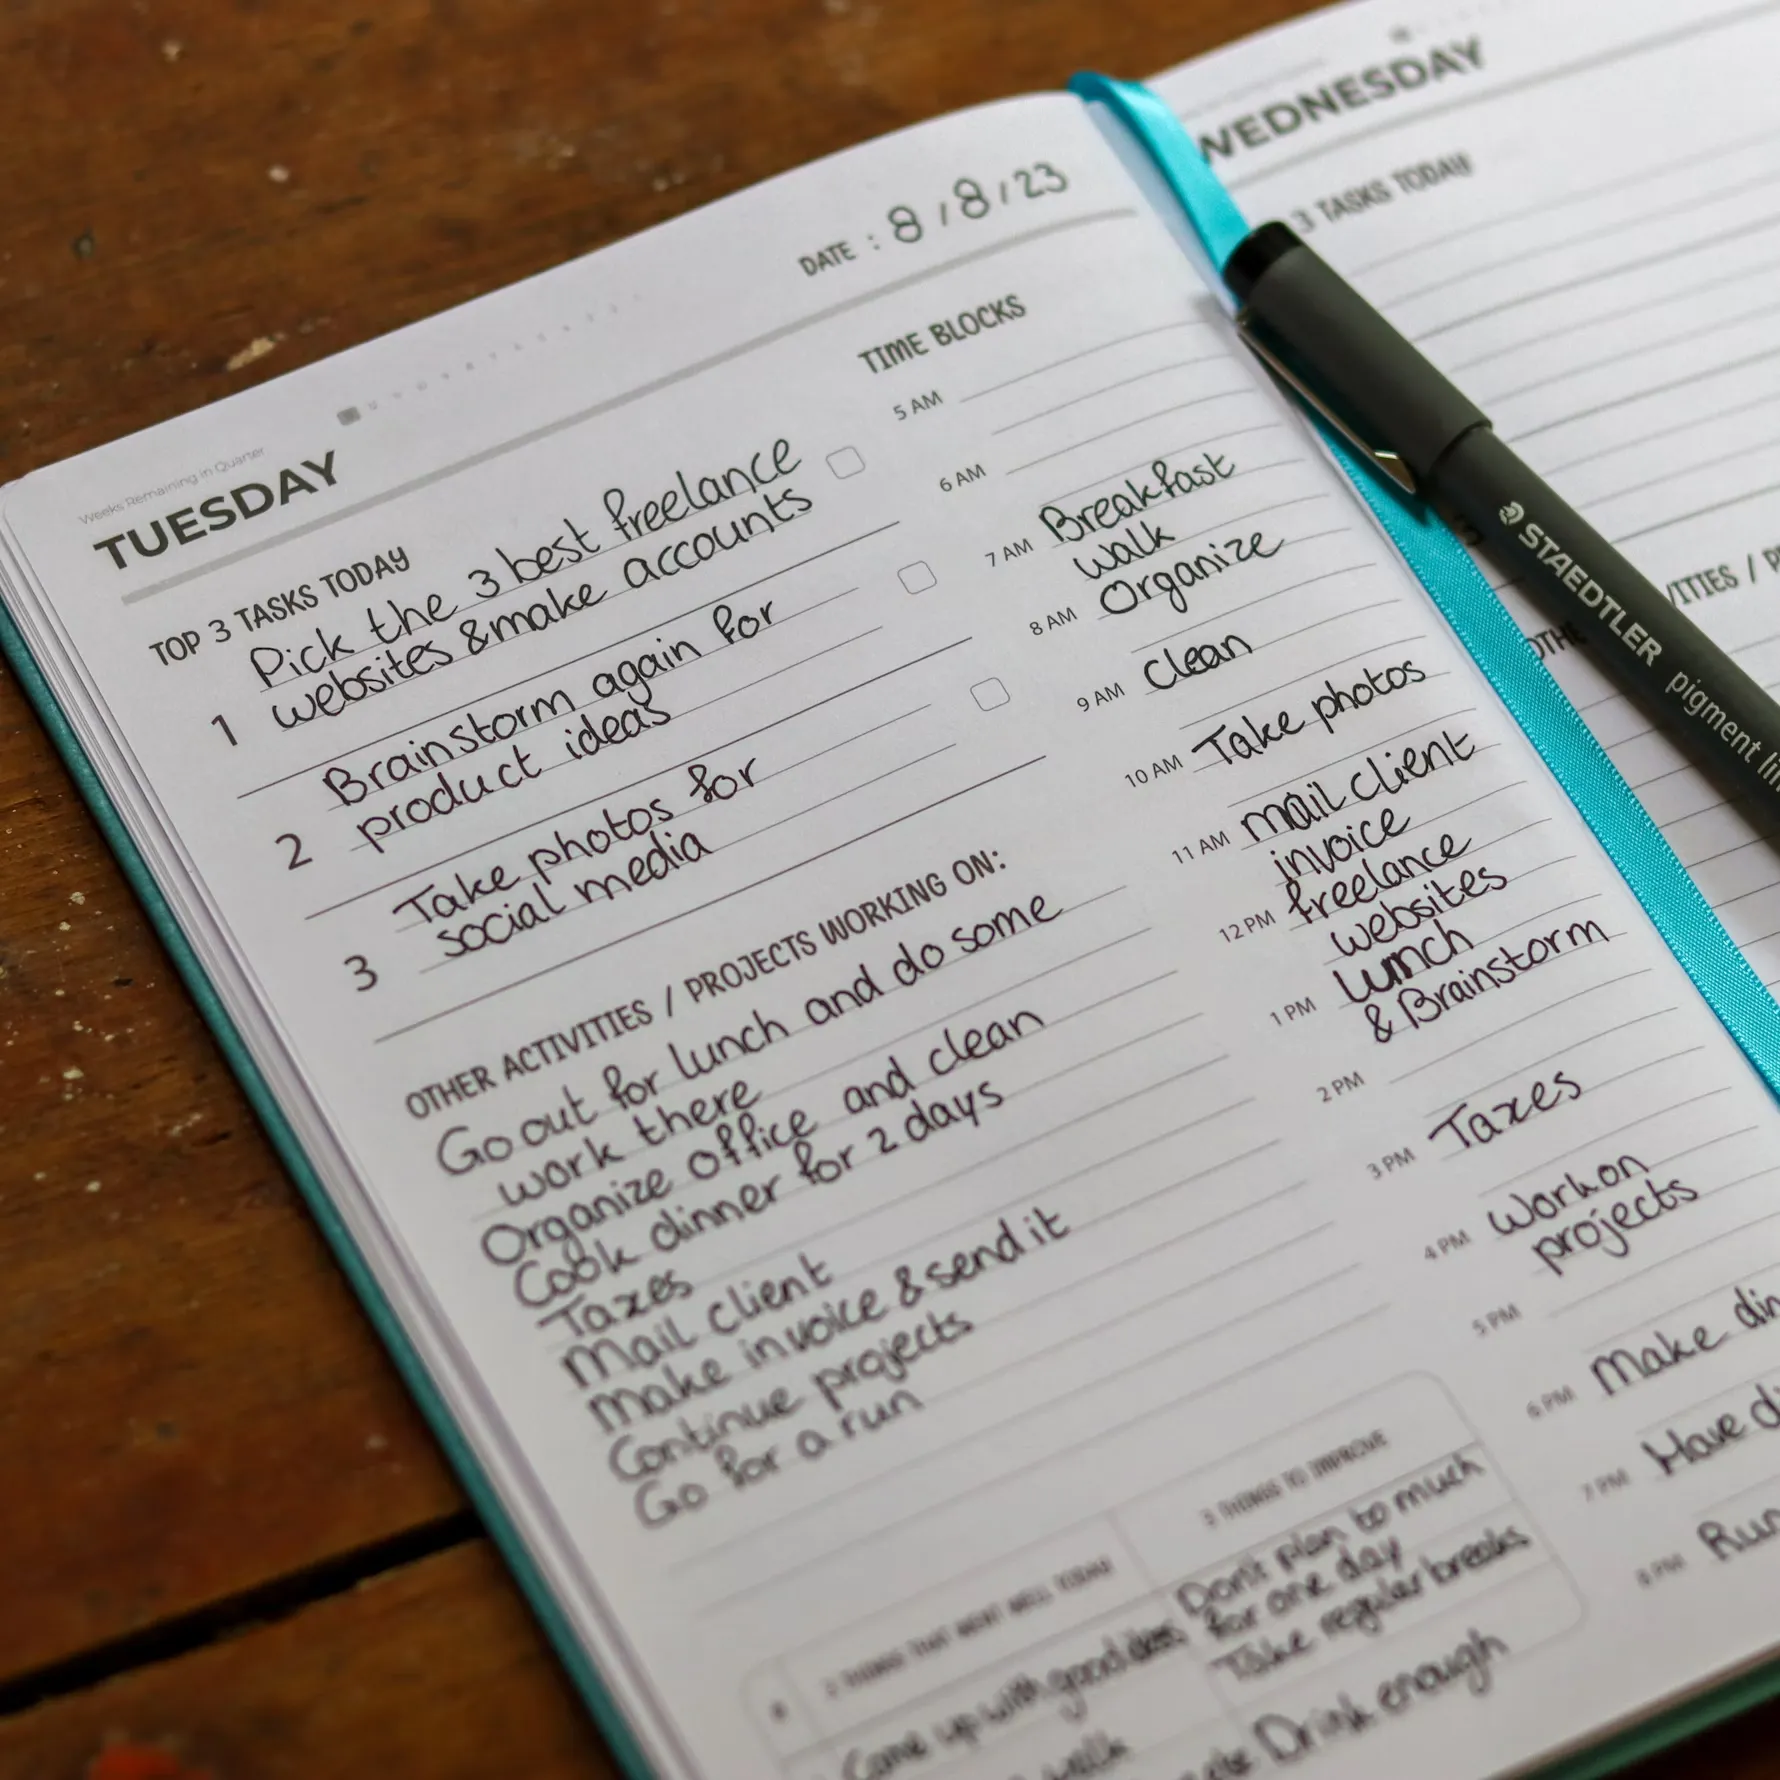 Weeks Remaining in Quarter
TUESDAY
DATE : 8/8/23
TOP 3 TASKS TODAY
1 Pick the 3 best freelance
websites & make accounts
2 Brainstorm again for
product ideas
3 Take photos for
social media
OTHER ACTIVITIES / PROJECTS WORKING ON:
Go out for lunch and do some
work there
Organize office and clean
Cook dinner for 2 days
Taxes
Mail client
Make invoice & send it
Continue projects
Go for a run
2 THINGS THAT WENT WELL TODAY
Come up with good ideas
walk
2 THINGS TO IMPROVE
Don't plan to much
for one day
Take regular breaks
Drink enough
TIME BLOCKS
5 AM
6 AM
7 AM Breakfast
walk
8 AM Organize
9 AM Clean
10 AM Take photos
11 AM mail client
invoice
12 PM freelance
websites
1 PM Lunch
& Brainstorm
2 PM
3 PM Taxes
4 PM Work on
projects
5 PM
6 PM Make din
7 PM Have di
8 PM Run
WEDNESDAY
3 TASKS TODAY
OTHE
VITIES / P
STAEDTLER pigment lin